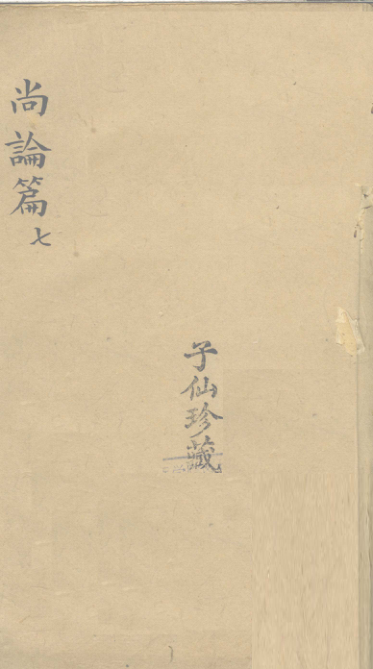 尚論篇 七
子仙珍藏